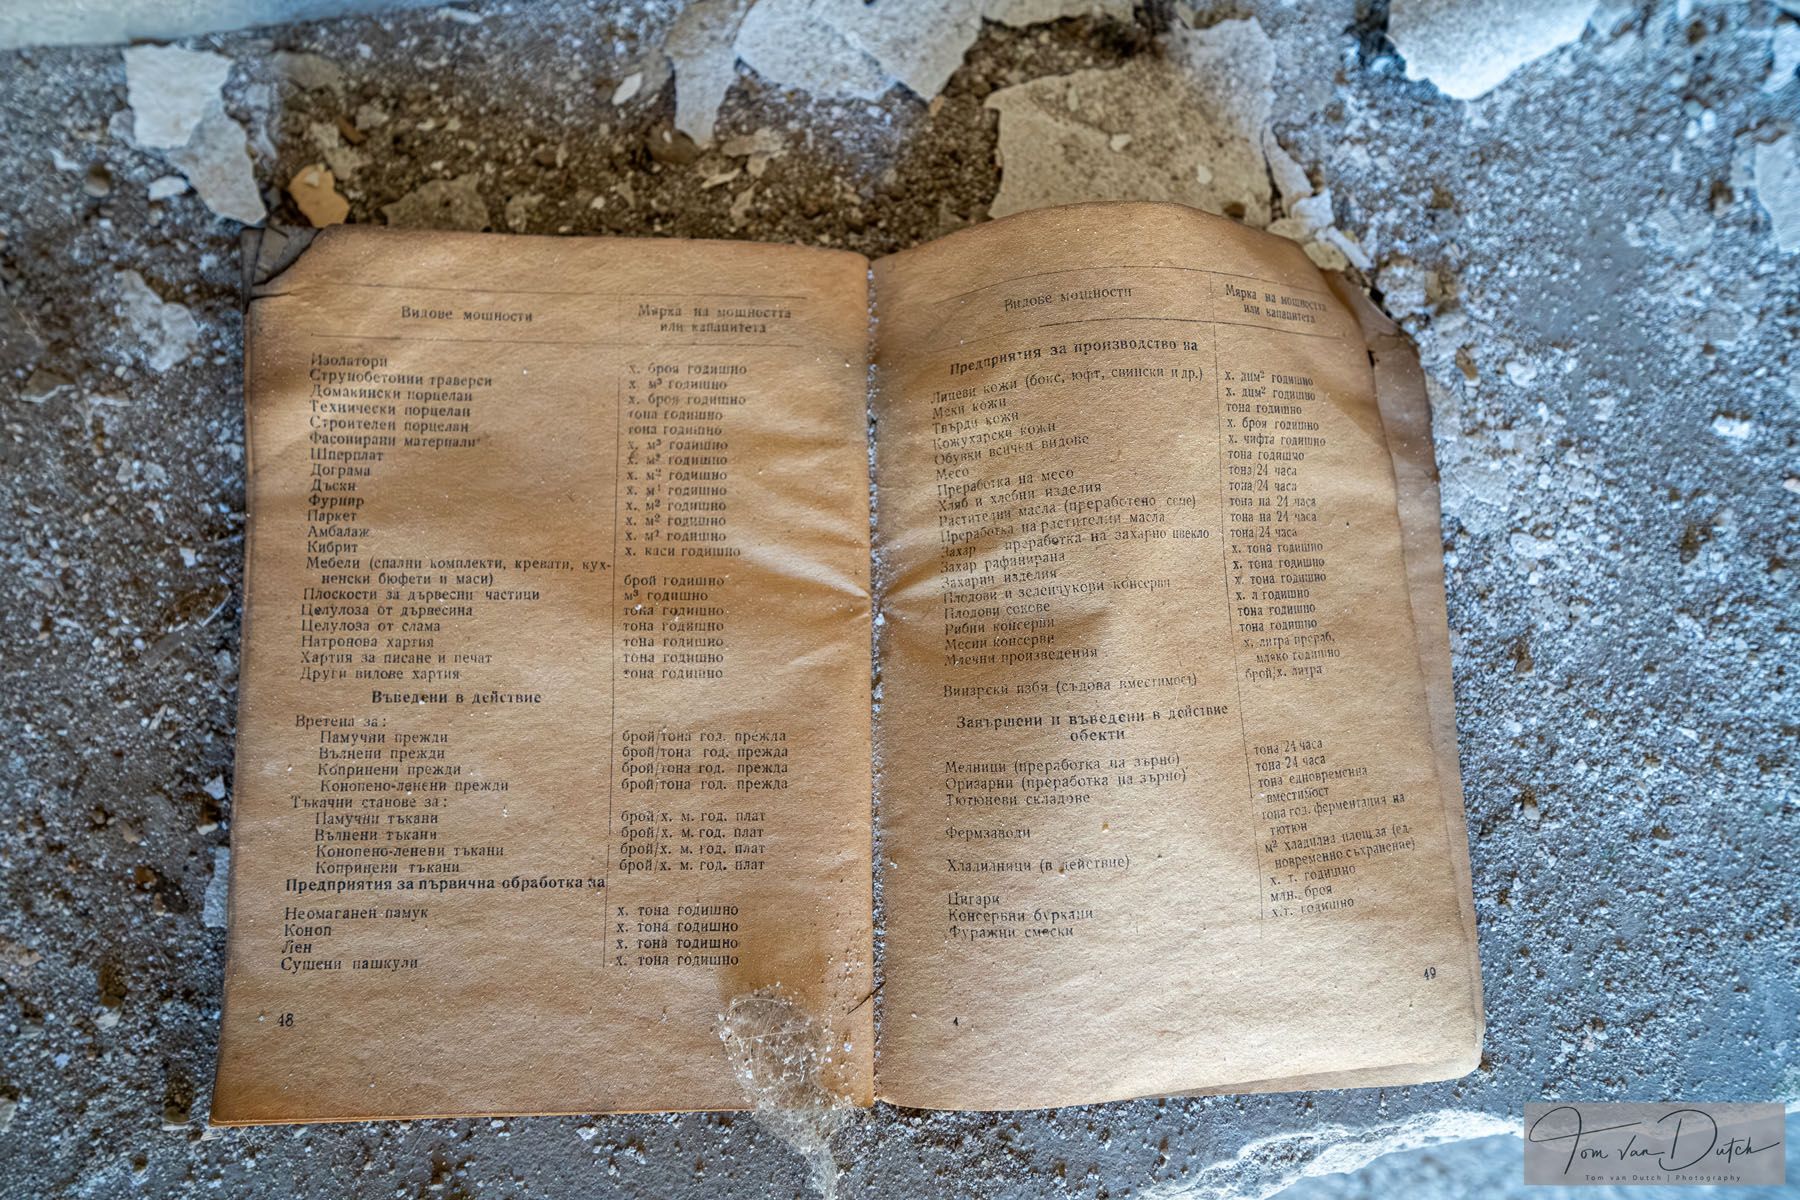 Видове мощности
Мярка на мощността
или капацитета
Изолатори х. броя годишно
Струнобетонни траверси х. м³ годишно
Домакински порцелан х. броя годишно
Технически порцелан тона годишно
Строителен порцелан тона годишно
Фасонирани материали х. м³ годишно
Шперплат х. м³ годишно
Дограма х. м² годишно
Дъски х. м³ годишно
Фурнир х. м² годишно
Паркет х. м² годишно
Амбалаж х. м³ годишно
Кибрит х. каси годишно
Мебели (спални комплекти, кревати, кух-
ненски бюфети и маси) брой годишно
Плоскости за дървесни частици м³ годишно
Целулоза от дървесина тона годишно
Целулоза от слама тона годишно
Натронова хартия тона годишно
Хартия за писане и печат тона годишно
Други видове хартия тона годишно
Въведени в действие
Вретена за:
Памучни прежди брой/тона год. прежда
Вълнени прежди брой/тона год. прежда
Копринени прежди брой/тона год. прежда
Конопено-ленени прежди брой/тона год. прежда
Тъкачни станове за:
Памучни тъкани брой/х. м. год. плат
Вълнени тъкани брой/х. м. год. плат
Конопено-ленени тъкани брой/х. м. год. плат
Копринени тъкани брой/х. м. год. плат
Предприятия за първична обработка на
Неомаганен памук х. тона годишно
Коноп х. тона годишно
Лен х. тона тодишно
Сушени пашкули х. тона годишно
48
Видове мощности
Мярка на мощността
или капацитета
Предприятия за производство на
Лицеви кожи (бокс, юфт, свински и др.) х. дцм² годишно
Меки кожи х. дцм² годишно
Твърди кожи тона годишно
Кожухарски кожи х. броя годишно
Обувки всички видове х. чифта годишно
Месо тона годишно
Преработка на месо тона/24 часа
Хляб и хлебни изделия тона/24 часа
Растителни масла (преработено семе) тона на 24 часа
Преработка на растителни масла тона на 24 часа
Захар — преработка на захарно цвекло тона/24 часа
Захар рафинирана х. тона годишно
Захарни изделия х. тона годишно
Плодови и зеленчукови консерви х. тона годишно
Плодови сокове х. л годишно
Рибни консерви тона годишно
Месни консерви тона годишно
Млечни произведения х. литра прераб.
мляко годишно
Винарски изби (съдова вместимост) брой/х. литра
Завършени и въведени в действие
обекти
Мелници (преработка на зърно) тона/24 часа
Оризарни (преработка на зърно) тона 24 часа
Тютюневи складове тона едновременна
вместимост
Фермзаводи тона год. ферментация на
тютюн
Хладилници (в действие) м² хладилна площ за (ед-
новременно съхранение)
х. т. годишно
Цигари млн. броя
Консервни буркани х.т. годишно
Фуражни смески
49
4
Tom van Dutch
Tom van Dutch | Photography